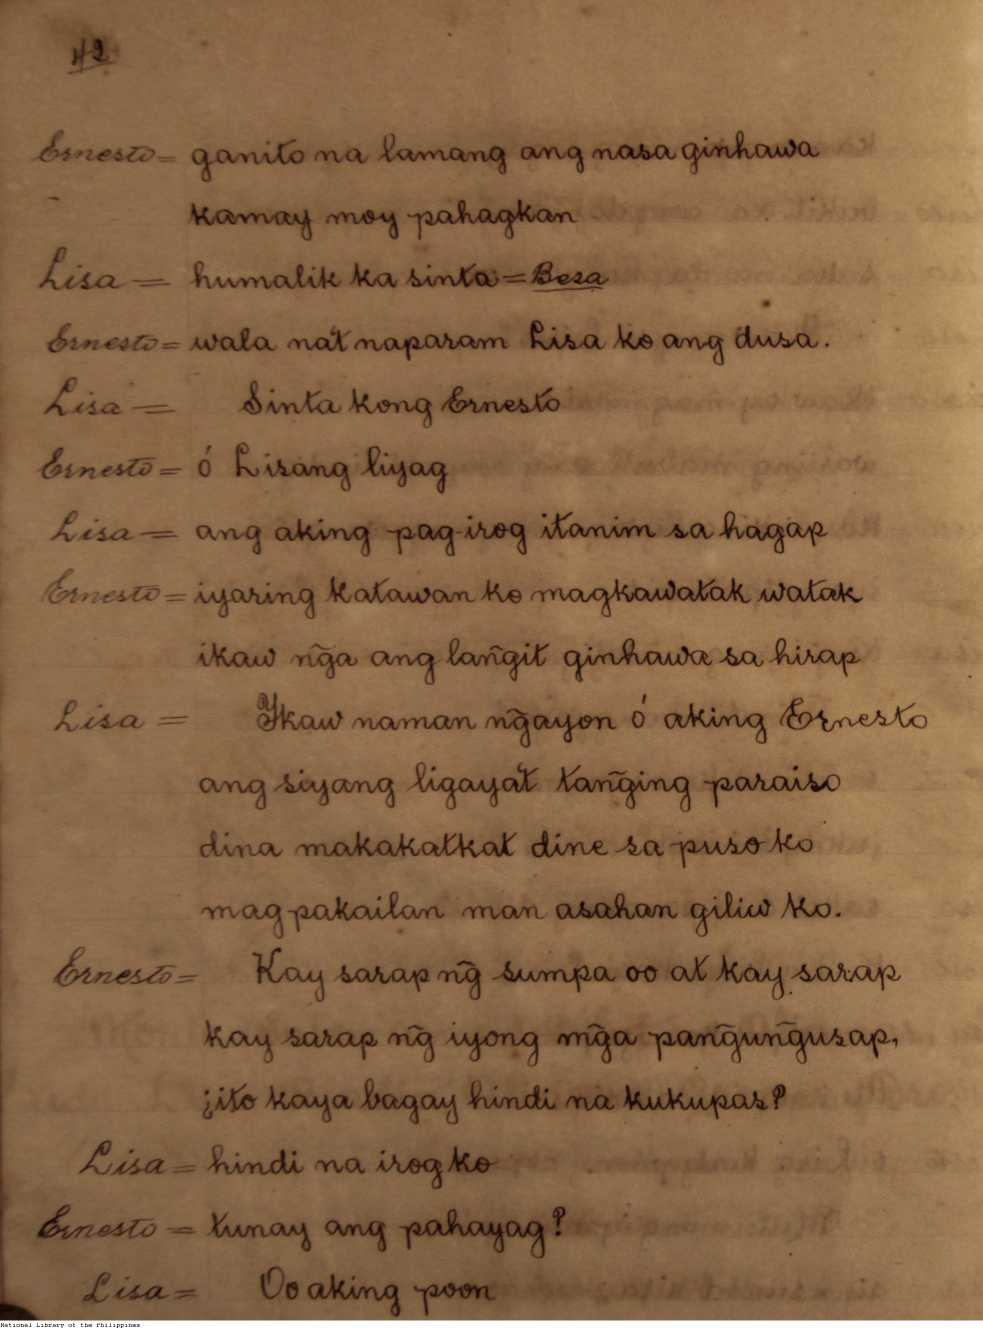 42
Ernesto = ganito na lamang ang nasa ginhawa
kamay moy pahagkan
Lisa = humalik ka sinta = Besa
Ernesto = wala na't naparam Lisa ko ang dusa.
Lisa = Sinta kong Ernesto
Ernesto = ó Lisang liyag
Lisa = ang aking pag-irog itanim sa hagap
Ernesto = iyaring katawan ko magkawatak watak
ikaw ng̃a ang lang̃it ginhawa sa hirap
Lisa = Ykaw naman ng̃ayon ó aking Ernesto
ang siyang ligaya't tang̃ing paraiso
dina makakatkat dine sa puso ko
magpakailan man asahan giliw ko.
Ernesto = Kay sarap ng̃ sumpa oo at kay sarap
kay sarap ng̃ iyong mg̃a pang̃ung̃usap,
¿ito kaya bagay hindi na kukupas?
Lisa = hindi na irog ko
Ernesto = tunay ang pahayag?
Lisa = Oo aking poon
National Library of the Philippines